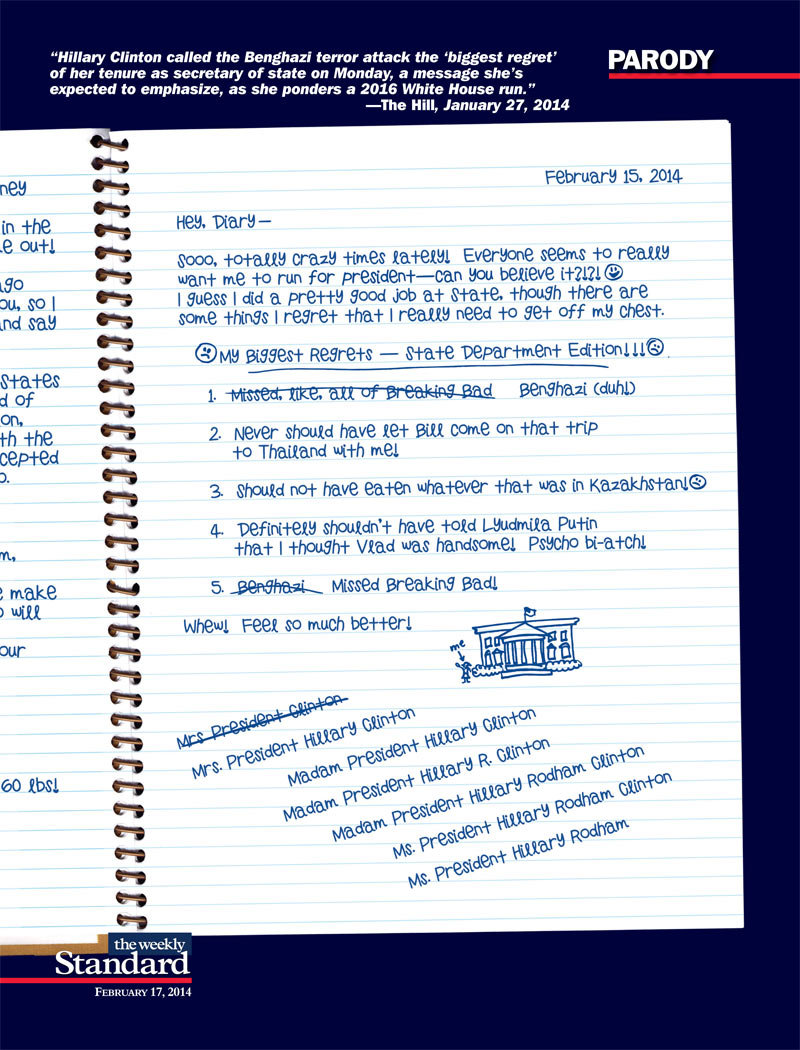 “Hillary Clinton called the Benghazi terror attack the ‘biggest regret’
of her tenure as secretary of state on Monday, a message she’s
expected to emphasize, as she ponders a 2016 White House run.”
—The Hill, January 27, 2014
PARODY
ney
in the
e out!
ago
ou, so I
and say
States
d of
on,
th the
cepted
o.
m,
e make
o will
our
60 lbs!
February 15, 2014
Hey, Diary—
Sooo, totally crazy times lately! Everyone seems to really
want me to run for president—can you believe it?!?!
I guess I did a pretty good job at State, though there are
some things I regret that I really need to get off my chest.
My Biggest Regrets — State Department Edition!!!
1. Missed, like, all of Breaking Bad Benghazi (duh!)
2. Never should have let Bill come on that trip
to Thailand with me!
3. Should not have eaten whatever that was in Kazakhstan!
4. Definitely shouldn't have told Lyudmila Putin
that I thought Vlad was handsome! Psycho bi-atch!
5. Benghazi Missed Breaking Bad!
Whew! Feel so much better!
me
Mrs President Clinton
Mrs. President Hillary Clinton
Madam President Hillary Clinton
Madam President Hillary R. Clinton
Madam President Hillary Rodham Clinton
Ms. President Hillary Rodham Clinton
Ms. President Hillary Rodham
the weekly
Standard
FEBRUARY 17, 2014